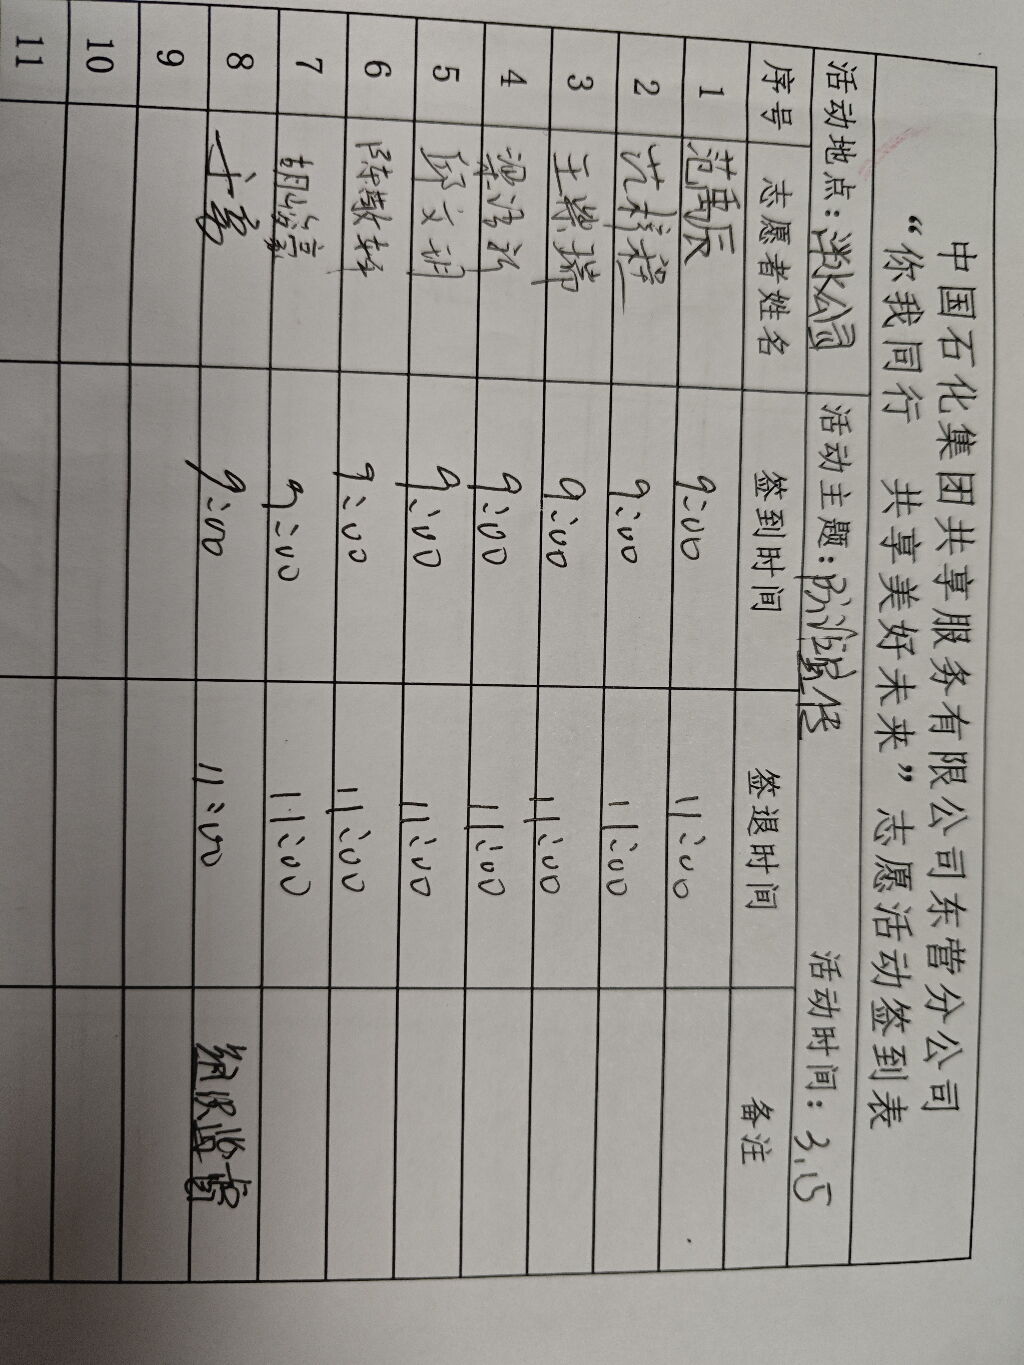 中国石化集团共享服务有限公司东营分公司
“你我同行 共享美好未来”志愿活动签到表
活动地点：公司 活动主题：防诈宣传 活动时间：3.15
序号 志愿者姓名 签到时间 签退时间 备注
1 范禹辰 9:00 11:00
2 9:00 11:00
3 王紫瑞 9:00 11:00
4 梁 9:00 11:00
5 邱文 9:00 11:00
6 陈敬 9:00 11:00
7 胡 9:00 11:00
8 9:00 11:00
9
10
11